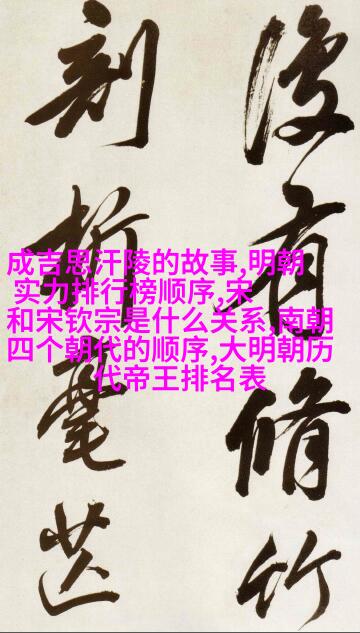 有脩竹
刻
成吉思汗陵的故事,明朝
实力排行榜顺序,宋
和宋钦宗是什么关系,南朝
四个朝代的顺序,大明朝历
代帝王排名表